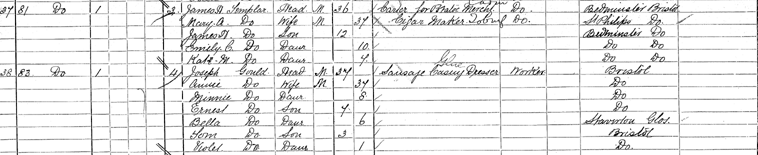 37 81 Do 1 3 James A. Templar Head M 36 Carter for Water Works Do. Bedminster Bristol
Mary A. Do Wife M 37 Cigar Maker Tobac Do. St Philips Do.
James Do Son 12 Bedminster Do
Emily C. Do Daur 10 Do Do
Kate M. Do Daur 7 Do Do
38 83 Do 1 4 Joseph Gould Head M 37 Sausage Casing Dresser Worker Bristol
Annie Do Wife M 37 Do
Minnie Do Daur 8 Do
Ernest Do Son 7 Do
Bella Do Daur 6 Staverton Glos.
Tom Do Son 3 Bristol
Violet Do Daur 1 Do.